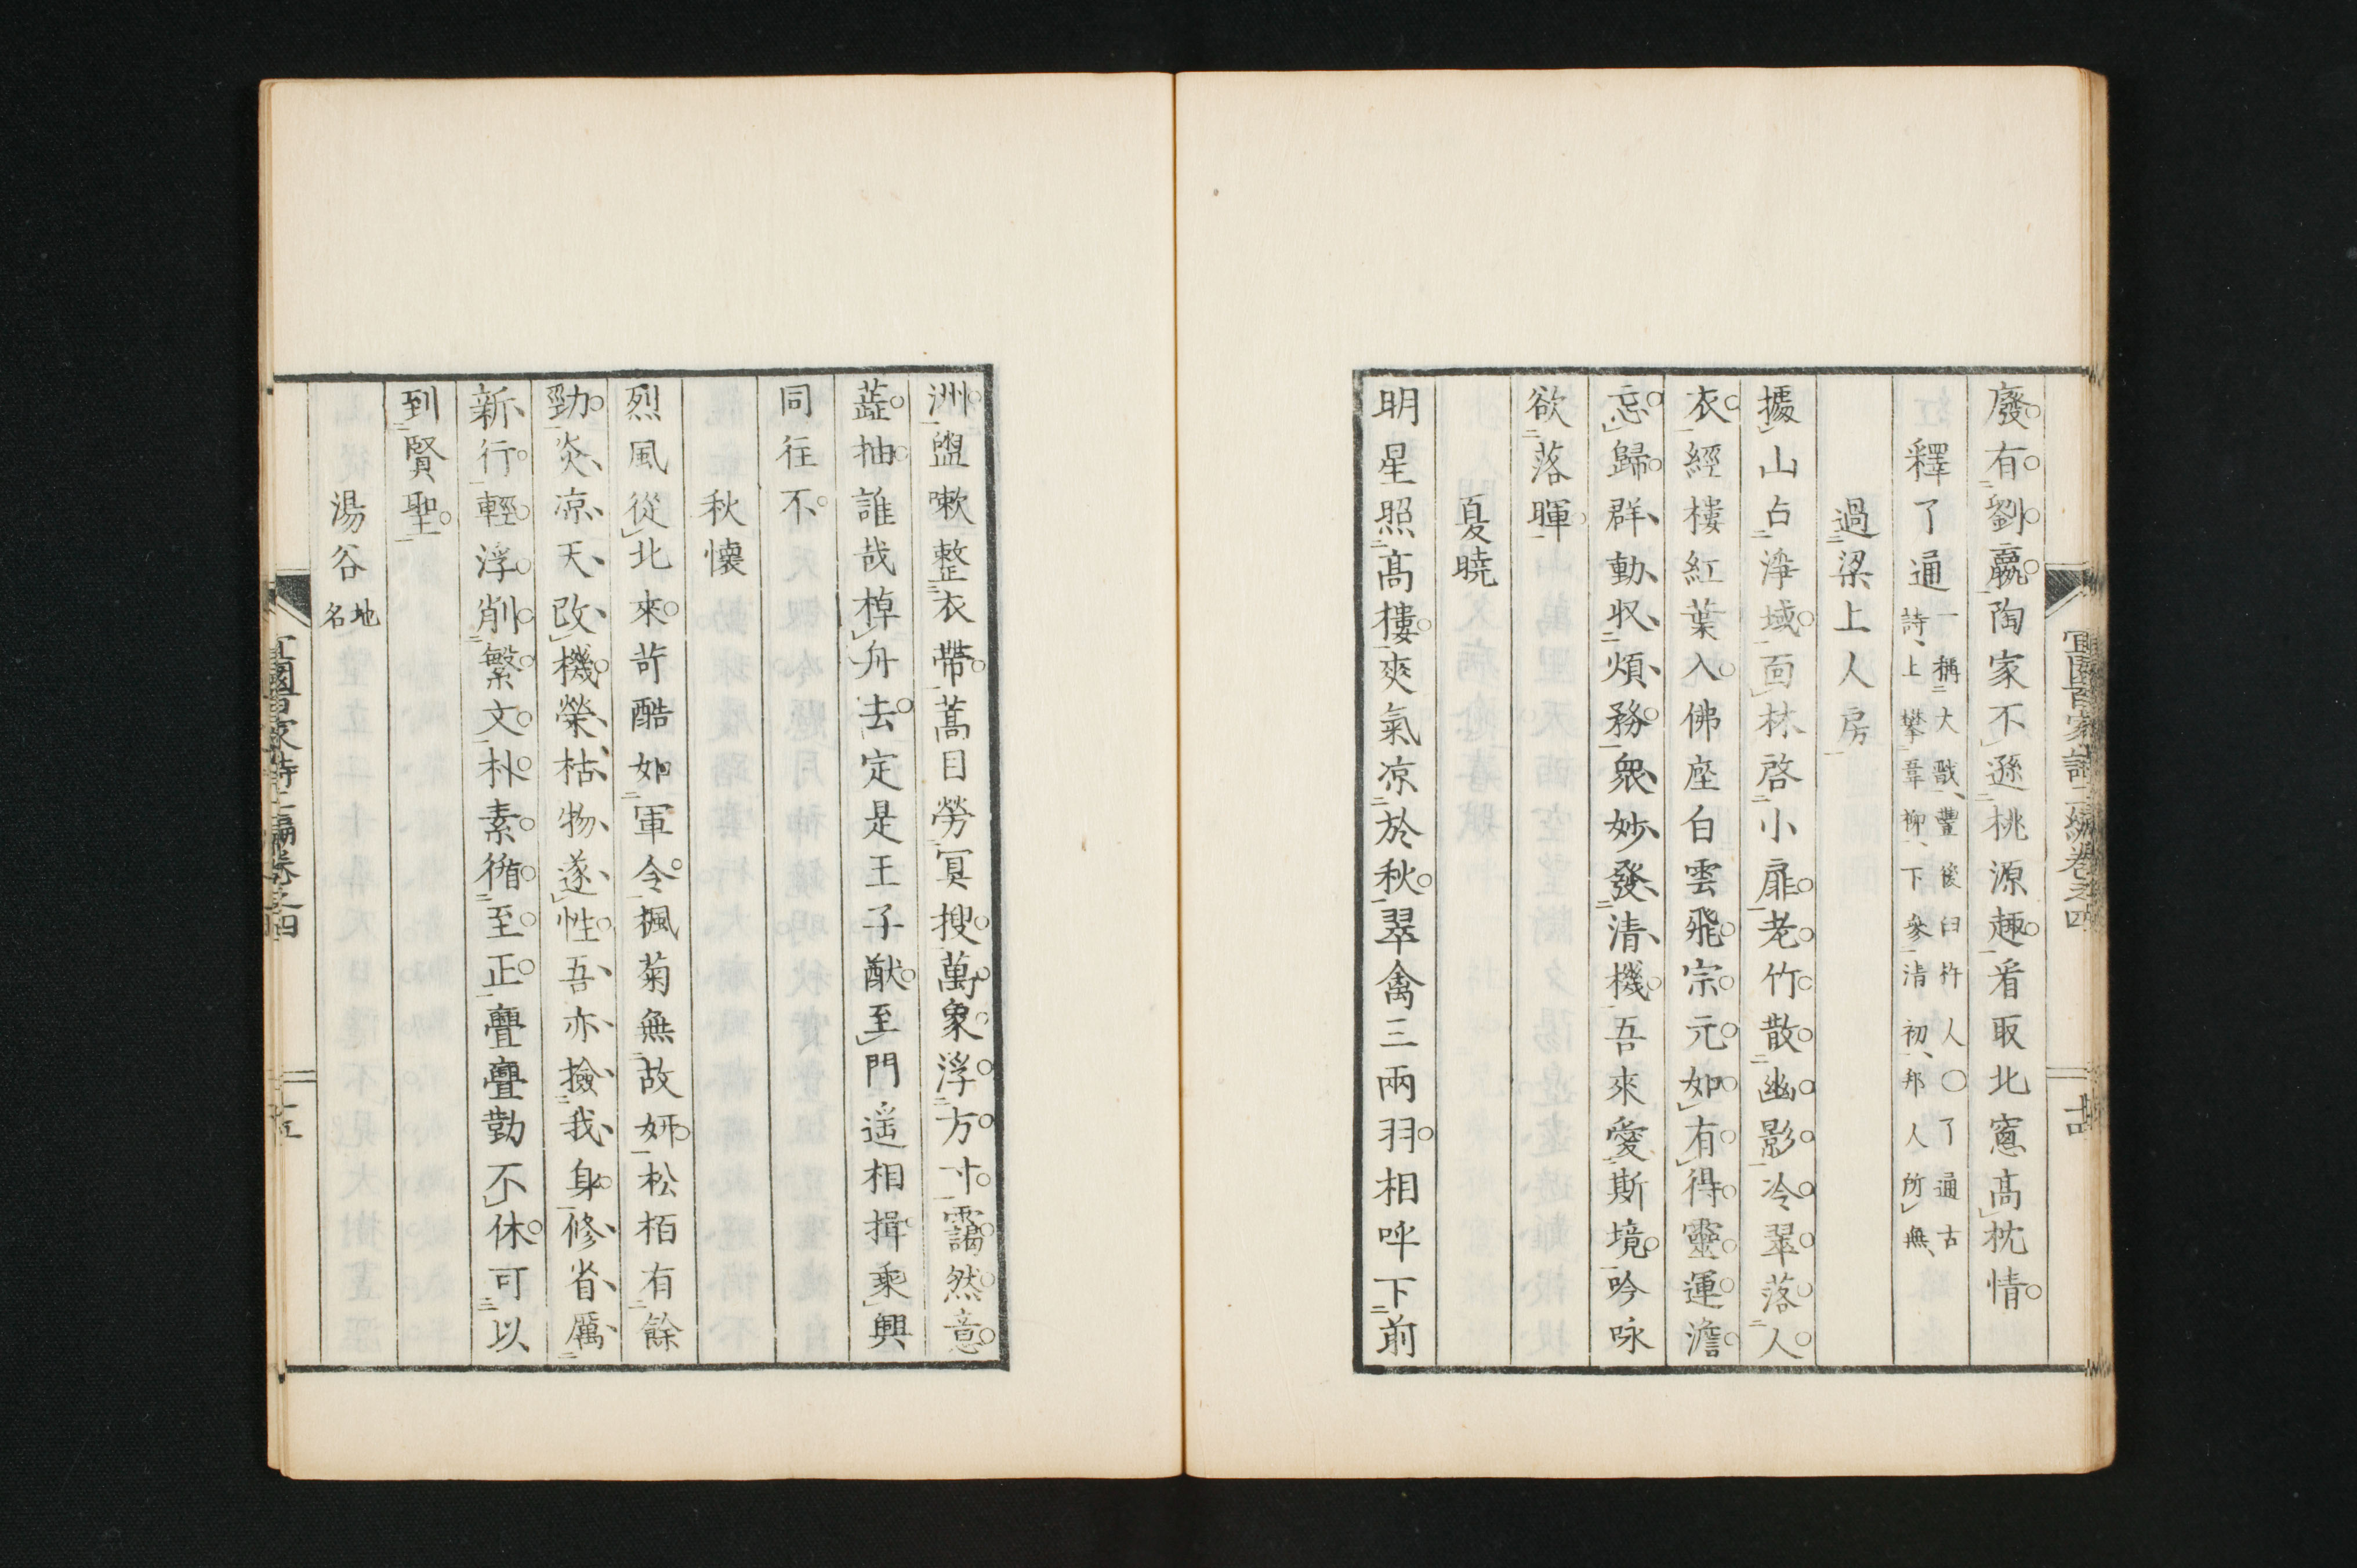 廢有劉嬴陶家不遜桃源趣看取北窻高枕情
釋了通
一稱大猷豐後臼杵人○了通古
詩上攀韋柳下參清初邦人所無
過梁上人房
據山占淨域面林啓小扉老竹散幽影冷翠落人
衣經樓紅葉入佛座白雲飛宗元如有得靈運澹
忘歸群動収煩務衆妙發清機吾來愛斯境吟咏
欲落暉
夏曉
明星照高樓爽氣凉於秋翠禽三兩羽相呼下前
洲盥嗽整衣帶蒿目勞冥搜萬象浮方寸靄然意
蘂抽誰哉棹舟去定是王子猷至門遥相揖乘興
同往不
秋懷
烈風從北來苛酷如軍令楓菊無故妍松栢有餘
勁炎凉天改機榮枯物遂性吾亦撿我身修省厲
新行輕浮削繁文朴素循至正亹亹勤不休可以
到賢聖
湯谷
地
名
宜園百家詩二編卷之四